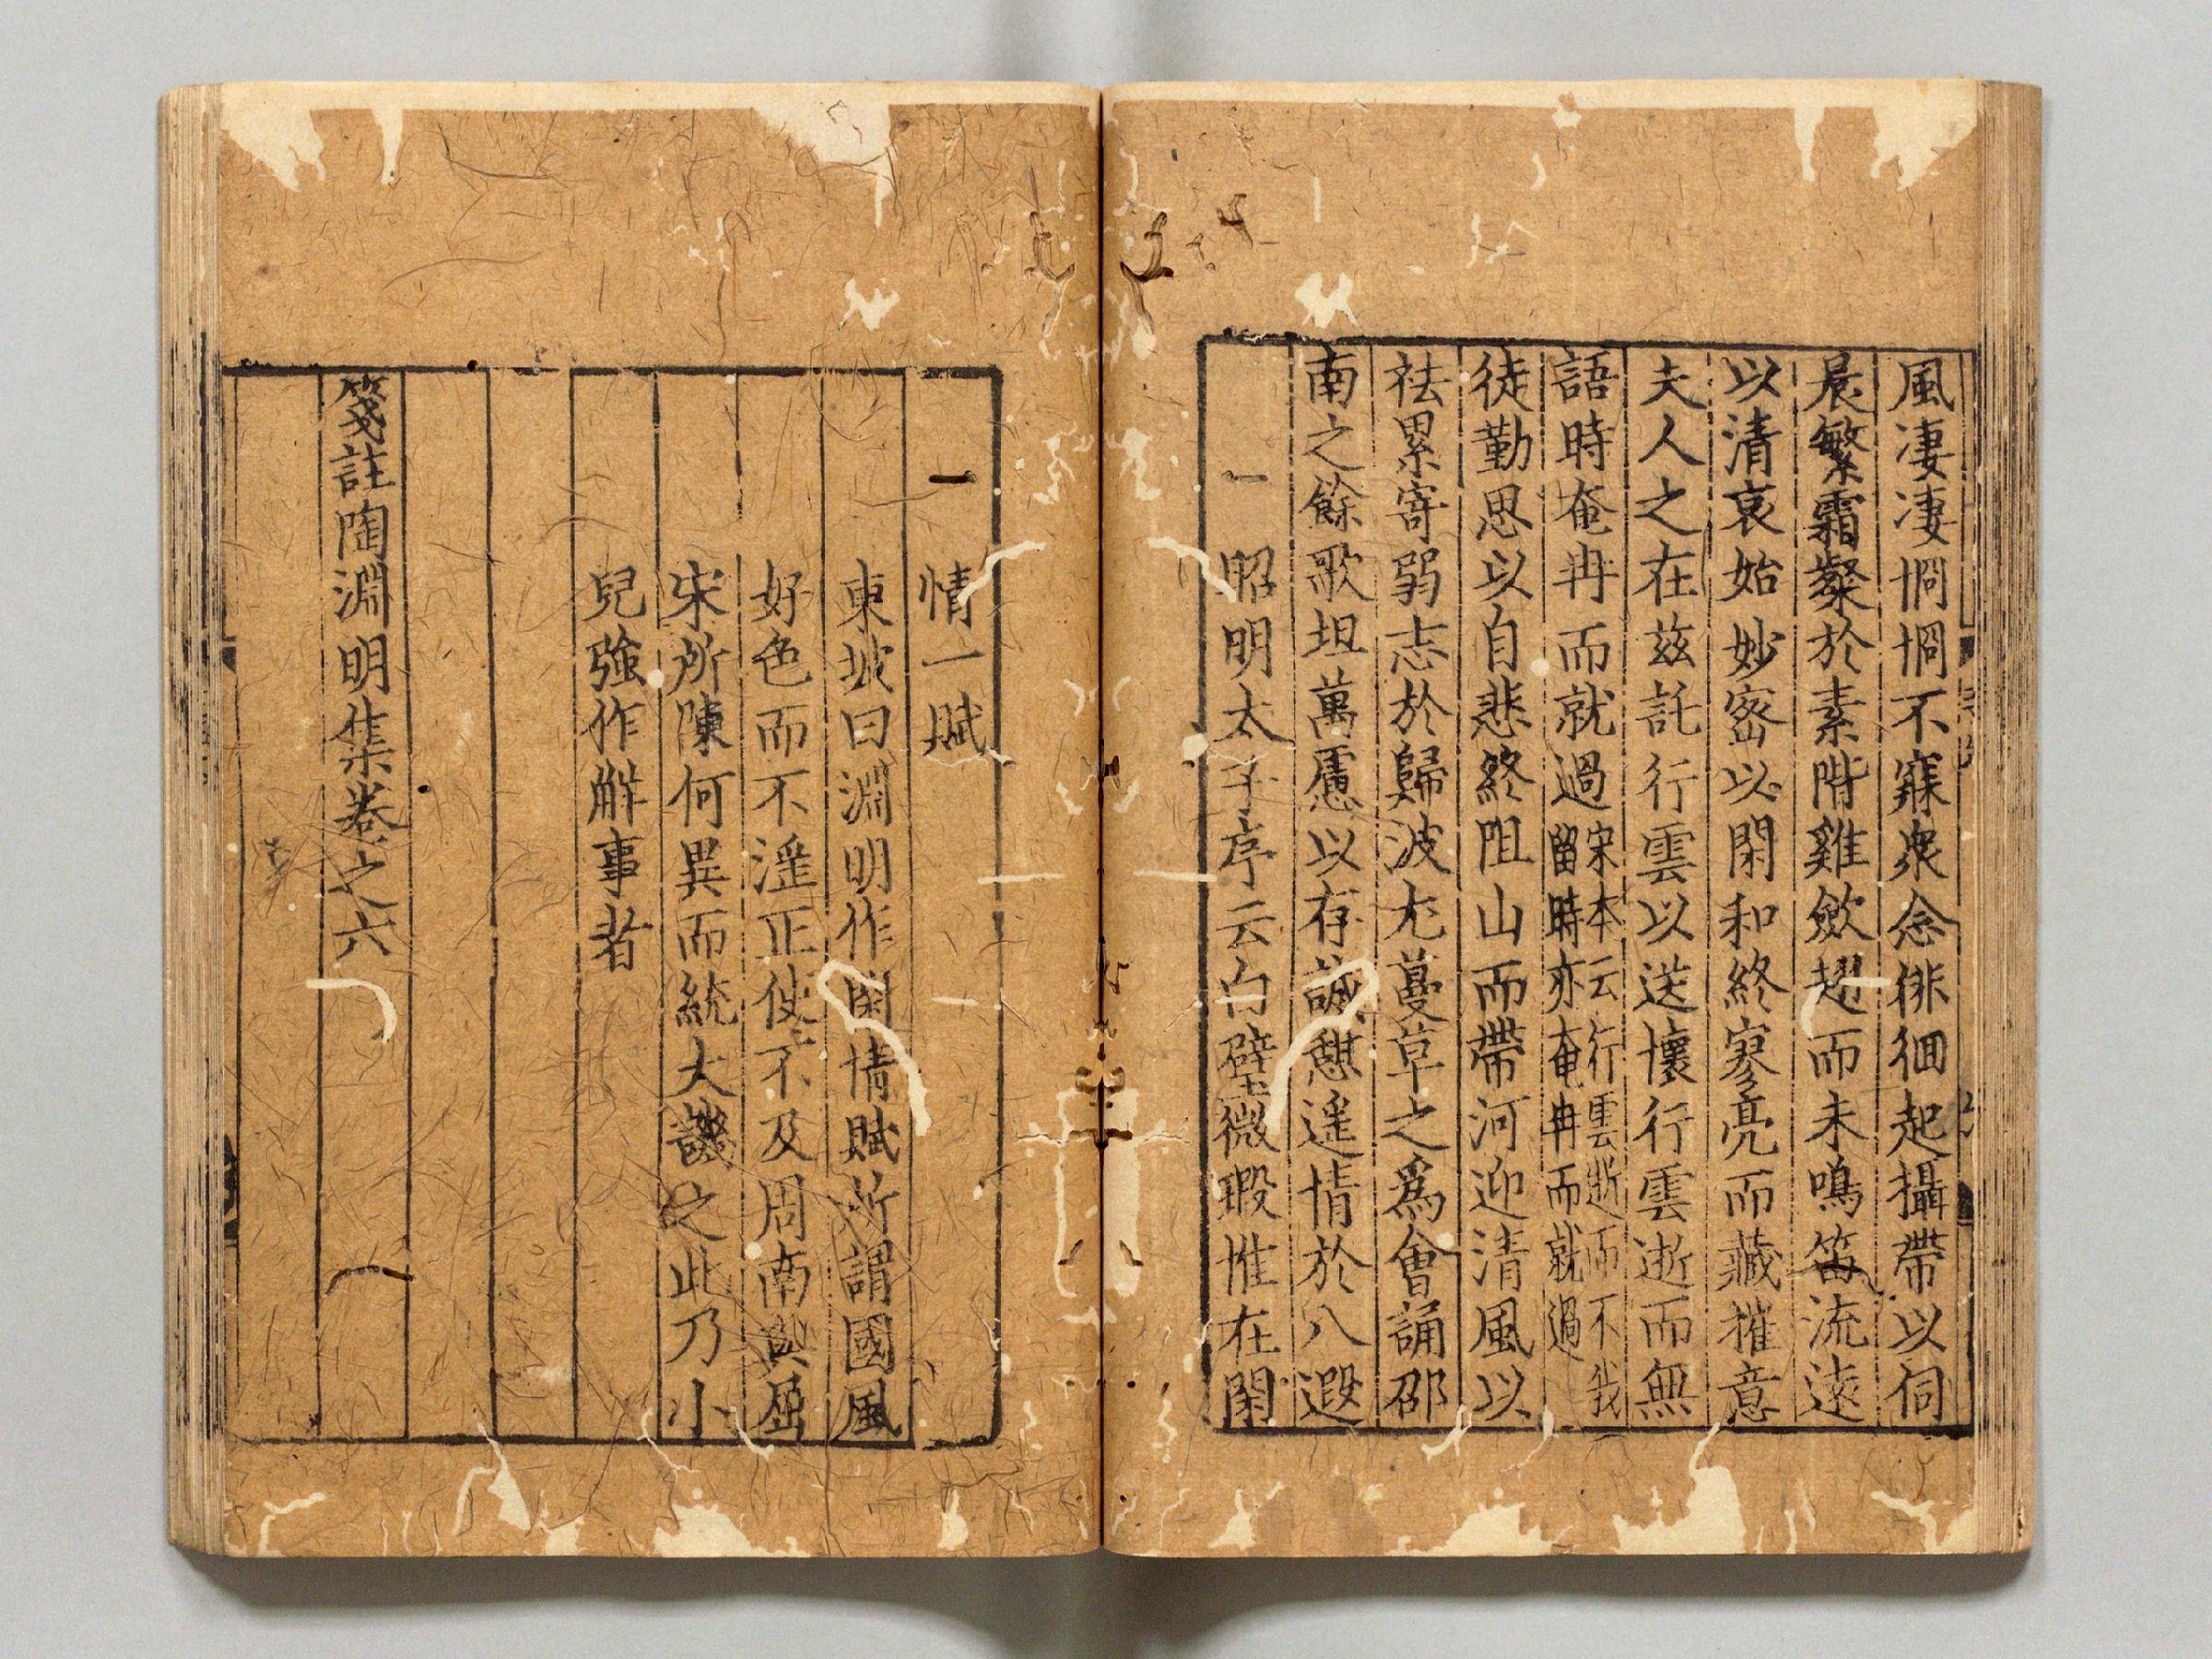 風凄凄惘惘不寐衆念徘徊起攝帶以伺
晨繁霜粲於素階雞斂翅而未鳴笛流遠
以清哀始妙宻以閑和終寥亮而藏摧意
夫人之在茲託行雲以送懷行雲逝而無
語時奄冉而就過宋本云行雲逝而不我留時亦奄冉而就過
徒勤思以自悲終阻山而帶河迎清風以
袪累寄弱志於歸波尤蔓草之爲會誦邵
南之餘歌坦萬慮以存誠憇遥情於八遐
一昭明太子序云白璧微瑕惟在閑
一情一賦
東坡曰淵明作閑情賦所謂國風
好色而不滛正使不及周南與屈
宋所陳何異而統大譏之此乃小
兒強作觧事者
箋註陶淵明集卷之六